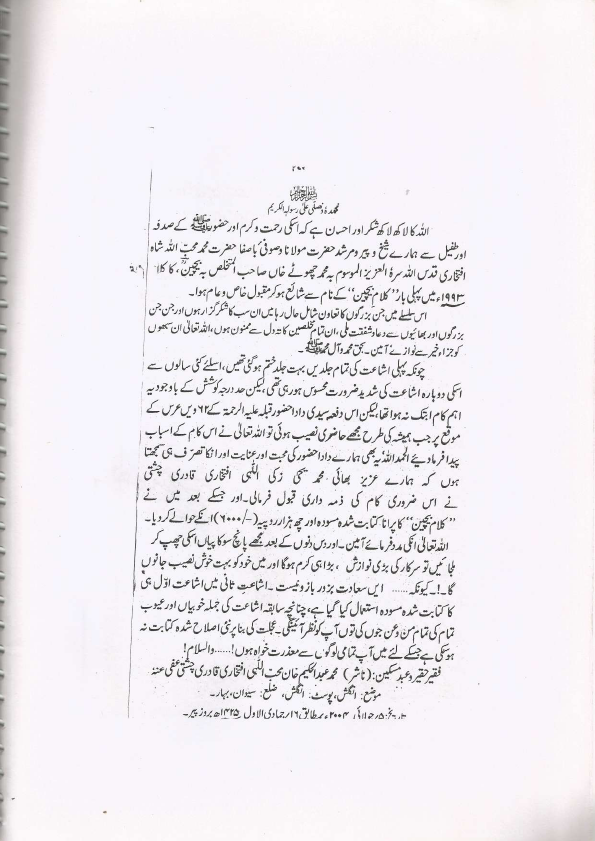 ۷۸۶
نحمدہٗ ونصلی علیٰ رسولہ الکریم
اللہ کا لاکھ لاکھ شکر اور احسان ہے کہ اسکی رحمت و کرم اور حضور ﷺ کے صدقہ
اور طفیل سے ہمارے شیخ و پیر و مرشد حضرت مولانا و صوفی با صفا حضرت محمد محبّ اللہ شاہ
افتخاری قدس اللہ سرہٗ العزیز الموسوم بہ محمد چھوٹے خاں صاحب المتخلص بہ بچپنؔ، کا کلا
۱۹۹۳ء میں پہلی بار ”کلام بچپن“ کے نام سے شائع ہو کر مقبول خاص و عام ہوا۔
اس سلسلے میں جن بزرگوں کا تعاون شامل حال رہا میں ان سب کا شکر گزار ہوں اور جن جن
بزرگوں اور بھائیوں سے دعاء شفقت ملی، ان تمام مخلصین کا تہ دل سے ممنون ہوں، اللہ تعالیٰ ان سبھوں
کو جزاء خیر سے نوازے آمین۔ بحق محمد و آل محمد ﷺ
چونکہ پہلی اشاعت کی تمام جلدیں بہت جلد ختم ہو گئی تھیں، اسلئے کئی سالوں سے
اسکی دوبارہ اشاعت کی شدید ضرورت محسوس ہو رہی تھی، لیکن حد درجہ کوشش کے باوجود یہ
اہم کام ابتک نہ ہوا تھا، لیکن اس دفعہ سیدی دادا حضور قبلہ علیہ الرحمۃ کے ۶۲ ویں عرس کے
موقع پر جب ہمیشہ کی طرح مجھے حاضری نصیب ہوئی تو اللہ تعالیٰ نے اس کام کے اسباب
پیدا فرما دیئے الحمد اللہ یہ بھی ہمارے دادا حضور کی محبت اور عنایت اور انکا تصرّف ہی سمجھتا
ہوں کہ ہمارے عزیز بھائی محمد یحییٰ زکی اللّٰہی افتخاری قادری چشتی
نے اس ضروری کام کی ذمہ داری قبول فرمالی۔ اور جسکے بعد میں نے
”کلام بچپن“ کا پرانا کتابت شدہ مسودہ اور چھ ہزار روپیہ (-/۶۰۰۰) انکے حوالے کر دیا۔
اللہ تعالیٰ انکی مدد فرمائے آمین۔ اور دس دنوں کے بعد مجھے پانچ سو کاپیاں اسکی چھپ کر
جائیں تو سرکار کی بڑی نوازش، بڑا ہی کرم ہوگا اور میں خود کو بہت خوش نصیب جانوں
گا۔!۔ کیونکہ...... ایں سعادت بزور بازو نیست۔ اشاعتِ ثانی میں اشاعت اوّل ہی
کا کتابت شدہ مسودہ استعمال کیا گیا ہے، چنانچہ سابقہ اشاعت کی جملہ خوبیاں اور عیوب
تمام کی تمام من و عن جوں کی توں آپ کو نظر آئینگی۔ عجلت کی بنا پر نئی اصلاح شدہ کتابت نہ
ہو سکی ہے جسکے لئے میں آپ تمامی لوگوں سے معذرت خواہ ہوں!...... والسلام!
فقیر حقیر و عبد مسکین: (ناشر) محمد عبدالحکیم خان محبّ اللّٰہی افتخاری قادری چشتی عفی عنہٗ
موضع: انگلش، پوسٹ: انگلش، ضلع: سیوان، بہار۔
۵ جولائی ۲۰۰۴ء بمطابق ۱۶ جمادی الاول ۱۴۲۵ھ بروز پیر۔